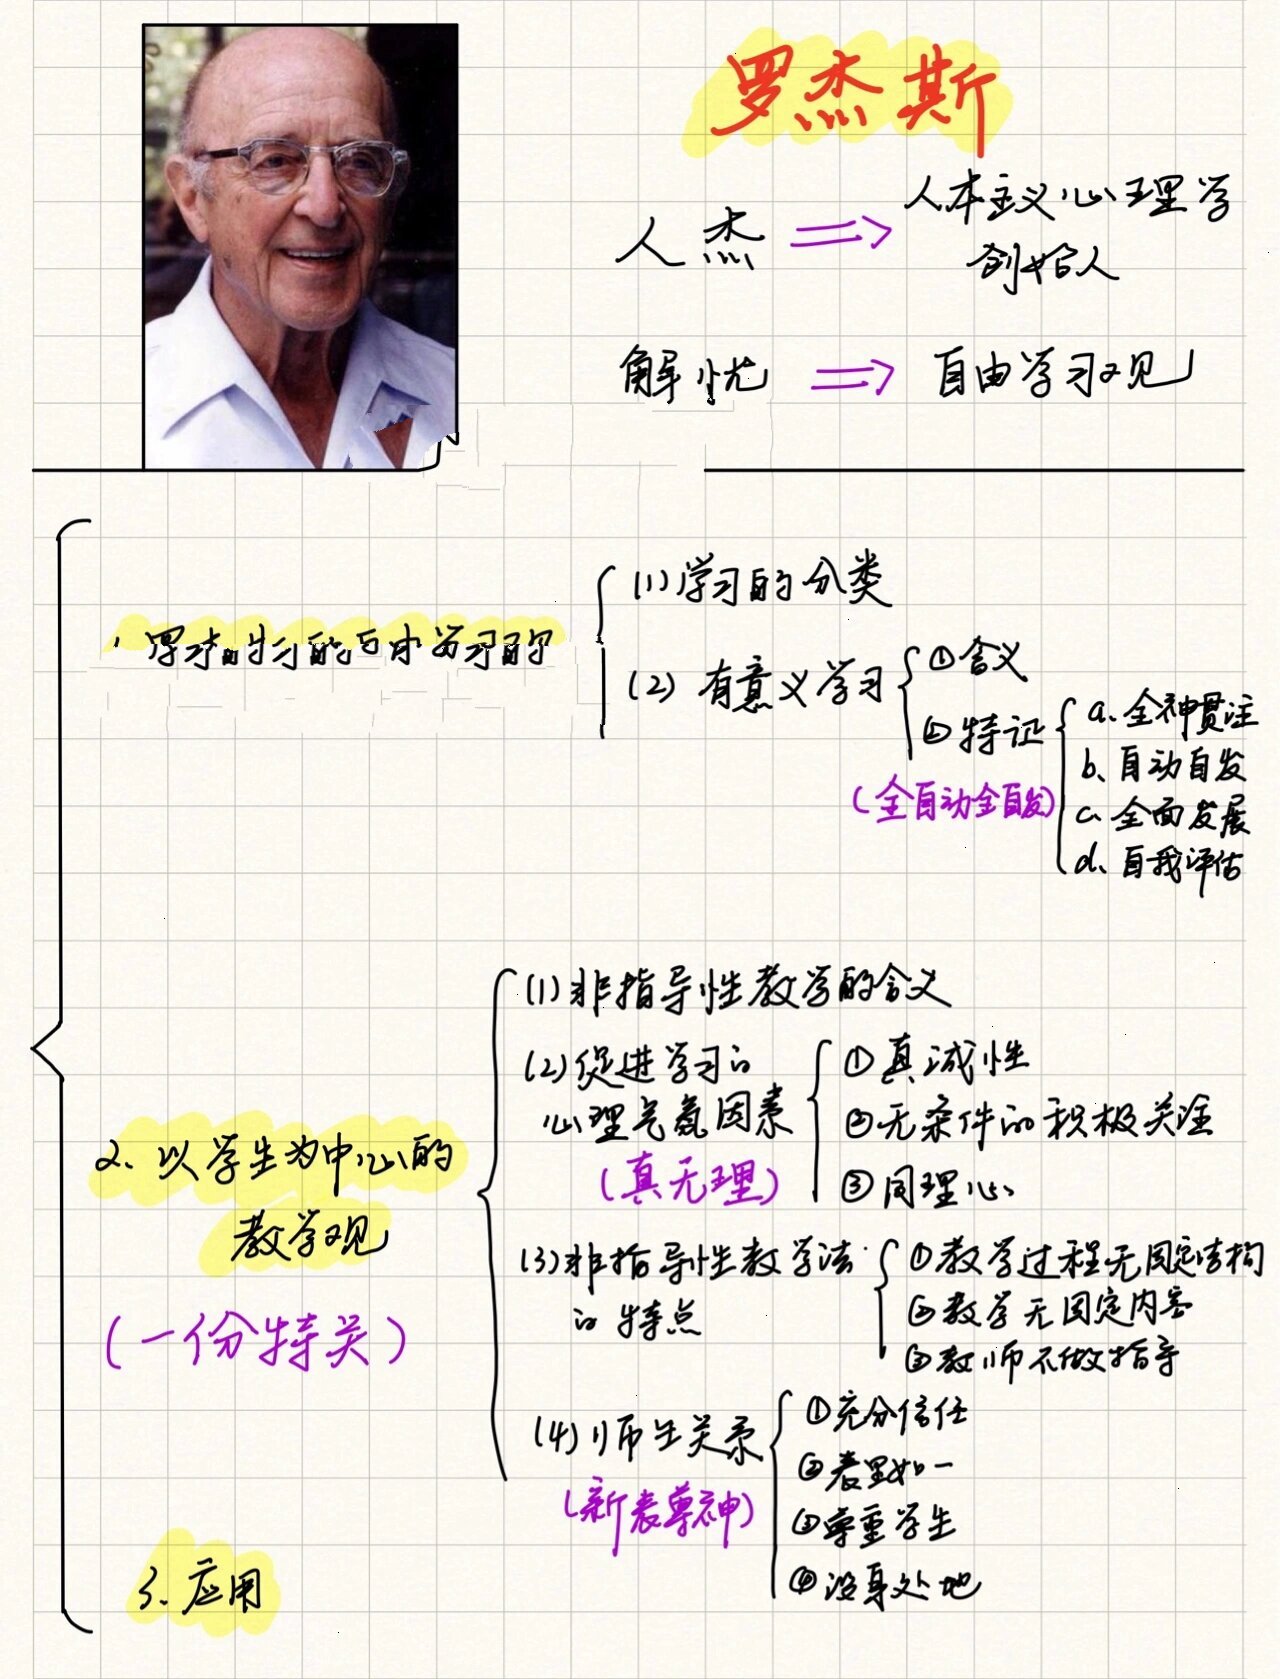 罗杰斯
人杰 ⇒ 人本主义心理学
创始人
解忧 ⇒ 自由学习观
1.
(1)学习的分类
(2)有意义学习
①含义
②特证
(全自动全自发)
a.全神贯注
b、自动自发
c.全面发展
d.自我评估
2、以学生为中心的
教学观
(一份特关)
(1)非指导性教学的含义
(2)促进学习的
心理气氛因素
(真无理)
①真诚性
②无条件的积极关注
③同理心
(3)非指导性教学法
的特点
①教学过程无固定结构
②教学无固定内容
③教师不做指导
(4)师生关系
(新表尊神)
①充分信任
②表里如一
③尊重学生
④设身处地
3、应用